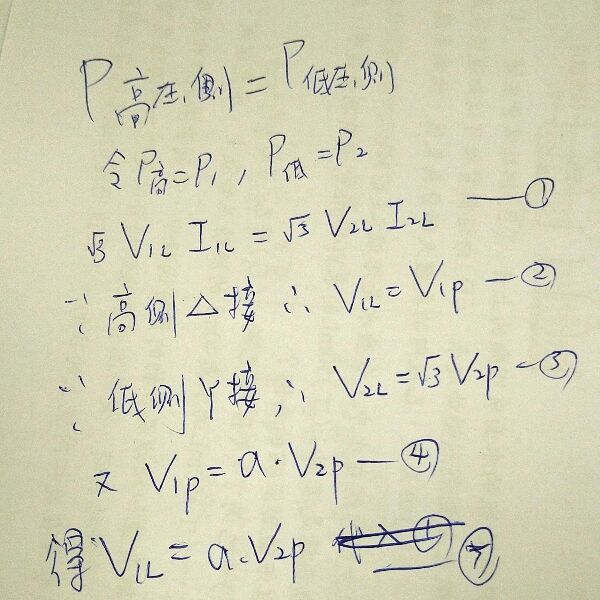 P高压側 = P低压側
令P高=P1, P低=P2
√3 V1L I1L = √3 V2L I2L —①
∵高側△接 ∴ V1L = V1p —②
∵低側Y接, ∴ V2L = √3 V2p —③
又 V1p = a·V2p —④
得 V1L = a·V2p